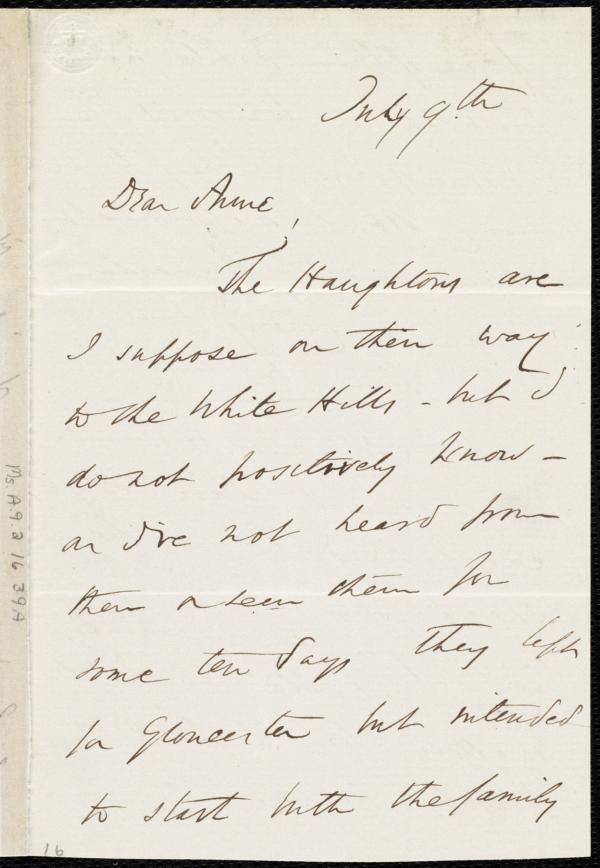 July 9.th
Dear Anne,
The Haughtons are
I suppose on their way
to the White Hills - but I
do not positively know -
as I've not heard from
them or seen them for
some ten days they left
for Gloucester but intended
to start with the family
Ms. A.9.2 16 39A
16